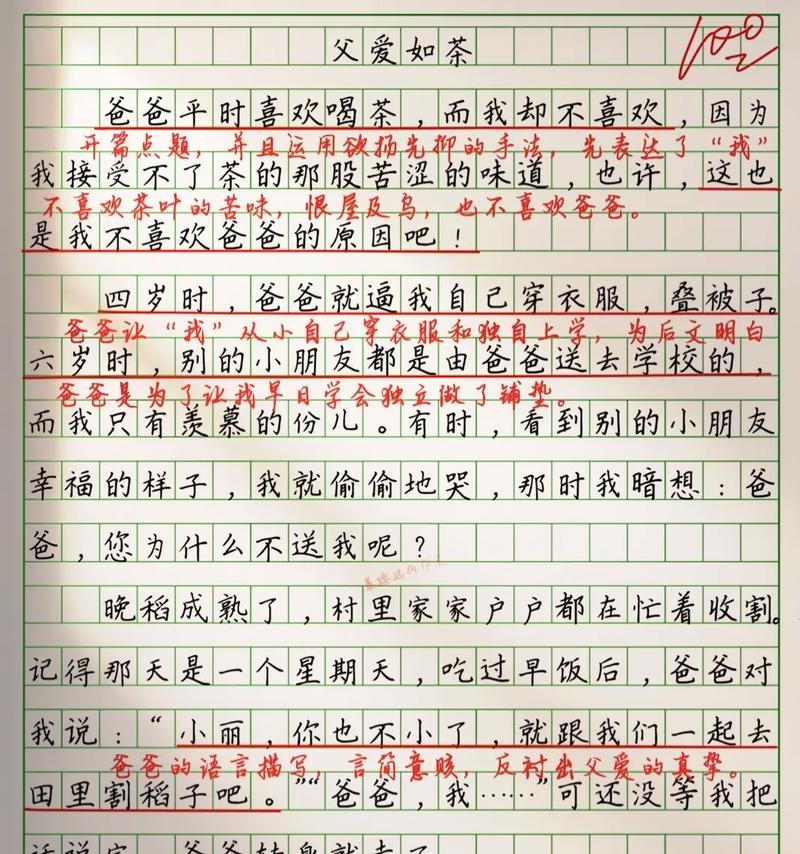 父爱如茶
100
爸爸平时喜欢喝茶，而我却不喜欢，因为
开篇点题，并且运用欲扬先抑的手法，先表达了“我”
我接受不了茶的那股苦涩的味道，也许，这也
不喜欢茶叶的苦味，恨屋及乌，也不喜欢爸爸。
是我不喜欢爸爸的原因吧！
四岁时，爸爸就逼我自己穿衣服，叠被子。
爸爸让“我”从小自己穿衣服和独自上学，为后文明白
六岁时，别的小朋友都是由爸爸送去学校的，
爸爸是为了让我早日学会独立做了铺垫。
而我只有羡慕的份儿。有时，看到别的小朋友
幸福的样子，我就偷偷地哭，那时我暗想：爸
爸，您为什么不送我呢？
晚稻成熟了，村里家家户户都在忙着收割。
记得那天是一个星期天，吃过早饭后，爸爸对
我说：“小丽，你也不小了，就跟我们一起去
爸爸的语言描写，言简意赅，反衬出父爱的真挚。
田里割稻子吧。”“爸爸，我……”可还没等我把
话说完，爸爸转身就走了